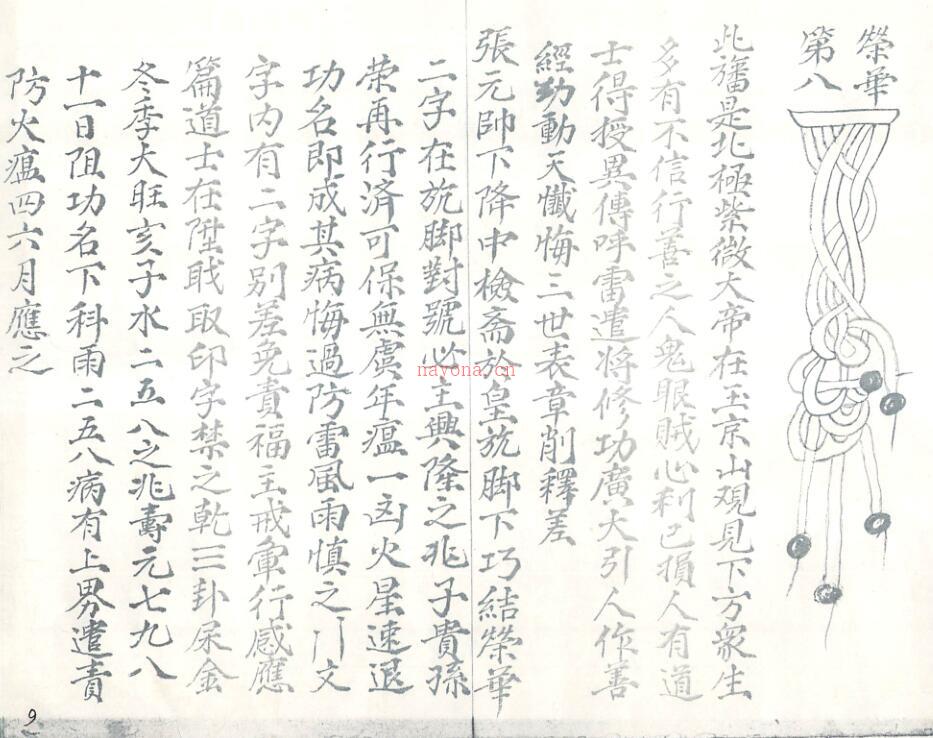 榮華
第八
此旛是北極紫微大帝在玉京山观見下方衆生
多有不信行善之人鬼眼賊心利己損人有道
士得授異傳呼雷遣將修功廣大引人作善
經功動天懺悔三世表章削釋差
張元帥下降中檢斋於皇旐脚下巧結榮華
二字在旐脚對號必主興隆之兆子貴孫
荣再行済可保無虞年瘟一凶火星速退
功名即成其病悔過防雷風雨慎之文
字内有二字别差免責福主戒軍行感應
篇道士在陞戝取印字禁之乾三卦屎金
冬季大旺亥子水二五八之兆壽元七九八
十一日阻功名下科雨二五八病有上界遣責
防火瘟四六月應之
nayona.cn
9